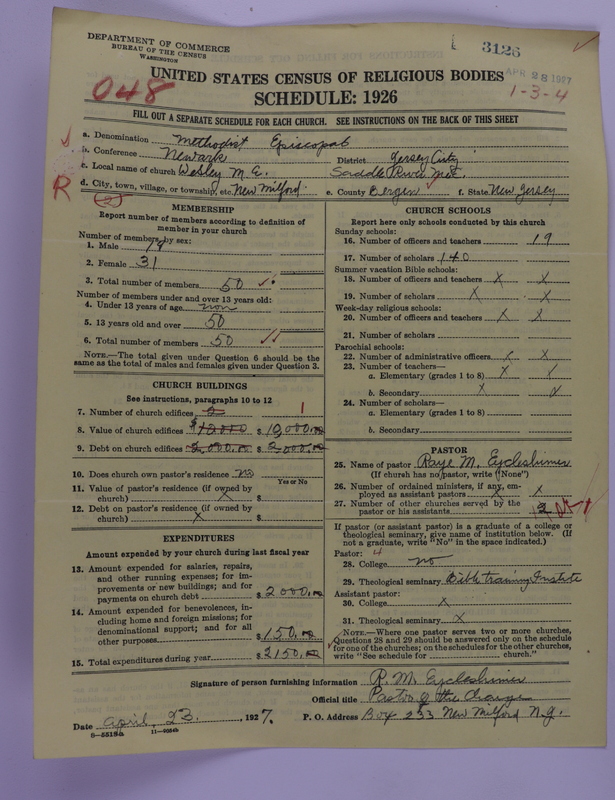 DEPARTMENT OF COMMERCE
BUREAU OF THE CENSUS
WASHINGTON
3126
APR 28 1927
048
1-3-4
UNITED STATES CENSUS OF RELIGIOUS BODIES
SCHEDULE: 1926
FILL OUT A SEPARATE SCHEDULE FOR EACH CHURCH. SEE INSTRUCTIONS ON THE BACK OF THIS SHEET
a. Denomination Methodist Episcopal
b. Conference Newark District Jersey City
c. Local name of church Wesley M. E. Saddle River
R d. City, town, village, or township, etc. New Milford e. County Bergen f. State New Jersey
MEMBERSHIP
Report number of members according to definition of
member in your church
Number of members by sex:
1. Male 19
2. Female 31
3. Total number of members 50
Number of members under and over 13 years old:
4. Under 13 years of age non
5. 13 years old and over 50
6. Total number of members 50
NOTE.—The total given under Question 6 should be
the same as the total of males and females given under Question 3.
CHURCH BUILDINGS
See instructions, paragraphs 10 to 12
7. Number of church edifices 2 1
8. Value of church edifices $12000 $12000.00
9. Debt on church edifices 2,000.00 $2000.00
10. Does church own pastor's residence no
Yes or No
11. Value of pastor's residence (if owned by
church) X $
12. Debt on pastor's residence (if owned by
church) X $
EXPENDITURES
Amount expended by your church during last fiscal year
13. Amount expended for salaries, repairs,
and other running expenses; for im-
provements or new buildings; and for
payments on church debt $2000.00
14. Amount expended for benevolences, in-
cluding home and foreign missions; for
denominational support; and for all
other purposes $150.00
15. Total expenditures during year $2150.00
CHURCH SCHOOLS
Report here only schools conducted by this church
Sunday schools:
16. Number of officers and teachers 19
17. Number of scholars 140
Summer vacation Bible schools:
18. Number of officers and teachers X X
19. Number of scholars X X
Week-day religious schools:
20. Number of officers and teachers X X
21. Number of scholars
Parochial schools:
22. Number of administrative officers X X
23. Number of teachers—
a. Elementary (grades 1 to 8) X X
b. Secondary X X
24. Number of scholars—
a. Elementary (grades 1 to 8)
b. Secondary
PASTOR
25. Name of pastor Raye M. Eycleshimer
(If church has no pastor, write "None")
26. Number of ordained ministers, if any, em-
ployed as assistant pastors X X
27. Number of other churches served by the
pastor or his assistants 2
If pastor (or assistant pastor) is a graduate of a college or
theological seminary, give name of institution below. (If
not a graduate, write "No" in the space indicated.)
Pastor:
28. College no
29. Theological seminary Bible training Institute
Assistant pastor:
30. College X
31. Theological seminary X
NOTE.—Where one pastor serves two or more churches,
Questions 28 and 29 should be answered only on the schedule
for one of the churches; on the schedules for the other churches,
write "See schedule for church."
Signature of person furnishing information R. M. Eycleshimer
Official title Pastor of the Charge
Date April 23, 1927. P. O. Address Box 233 New Milford N.J.